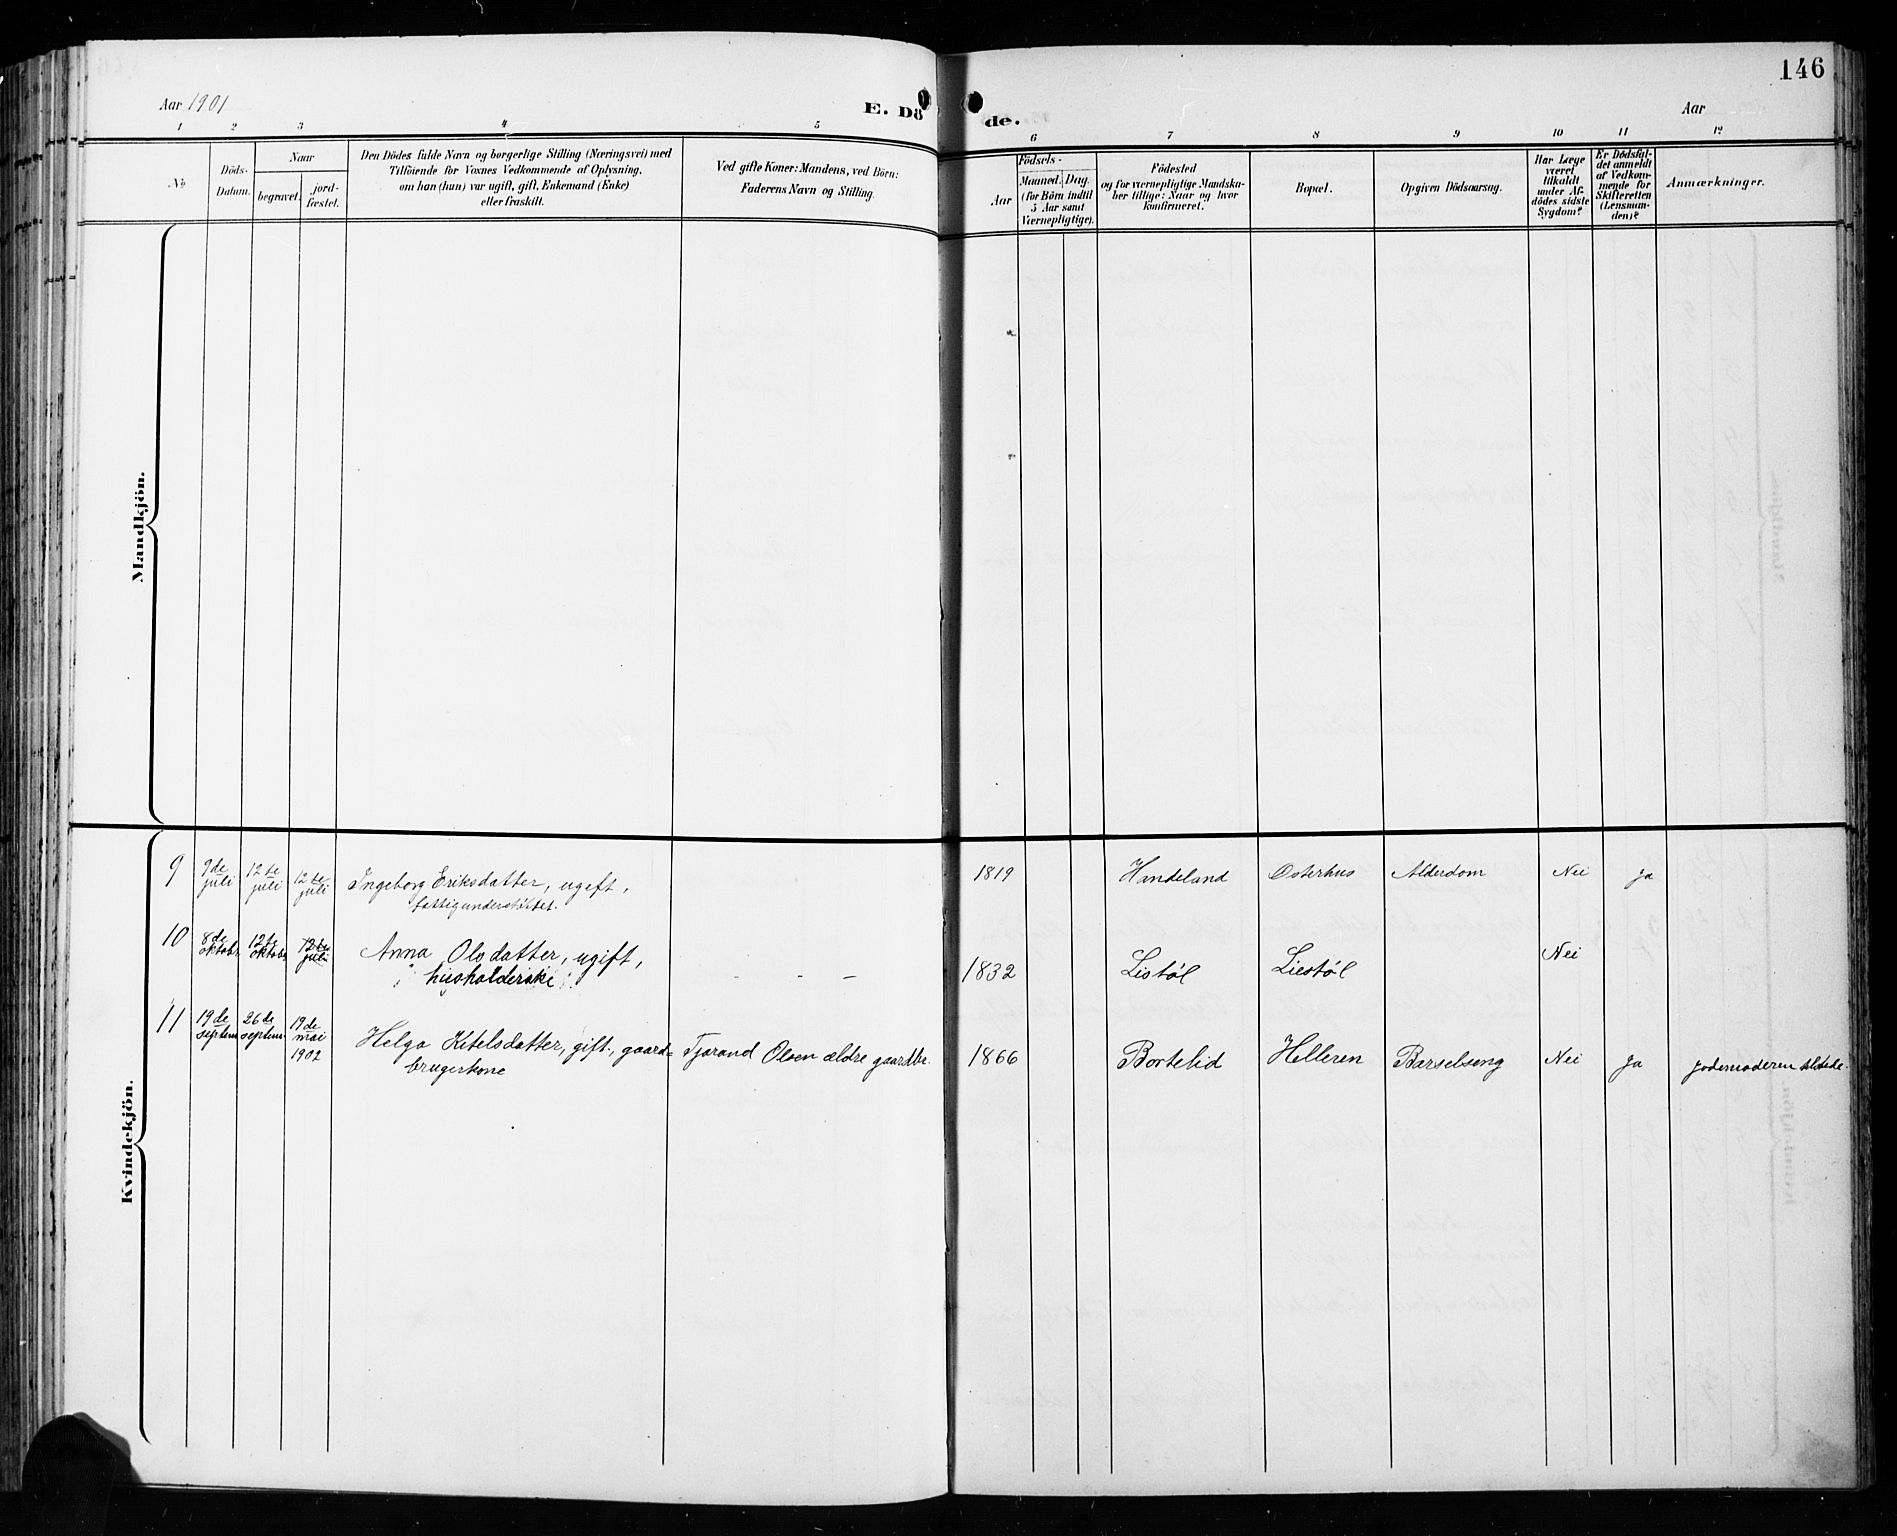 146
Aar 1901
E. Dö
de.
Aar
1 2 3 4 5 6 7 8 9 10 11 12
No
Döds-
Datum.
Naar
begravet.
jord-
fæstet.
Den Dödes fulde Navn og borgerlige Stilling (Næringsvei) med
Tilföiende for Voxnes Vedkommende af Oplysning,
om han (hun) var ugift, gift, Enkemand (Enke)
eller fraskilt.
Ved gifte Koner: Mandens, ved Börn:
Faderens Navn og Stilling.
Födsels-
Aar
Maaned. Dag.
(for Börn indtil
5 Aar samt
Værnepligtige).
Födested
og for værnepligtige Mandska-
ber tillige: Naar og hvor
konfirmeret.
Bopæl.
Opgiven Dödsaarsag.
Har Læge
været
tilkaldt
under Af-
dödes sidste
Sygdom?
Er Dödsfal-
det anmeldt
af Vedkom-
mende for
Skifteretten
(Lensman-
den)?
Anmærkninger.
Mandkjön.
Kvindekjön.
9
9de
juli
12te
juli
12te
juli
Ingeborg Eriksdatter, ugift,
fattigunderstöttet.
1819
Handeland
Osterhus
Alderdom
Nei
Ja
10
8de
oktobr
12te
oktobr
12te
juli
Anna Olsdatter, ugift,
husholderske
- - -
1832
Listøl
Liestøl
Nei
11
19de
septem
26de
septem
19de
mai
1902
Helga Kitelsdatter, gift, gaard=
brugerkone
Tjorand Olsen ældre gaardbr.
1866
Bortelid
Helleren
Barselseng
Nei
Ja
Jodemoderen tilstede.